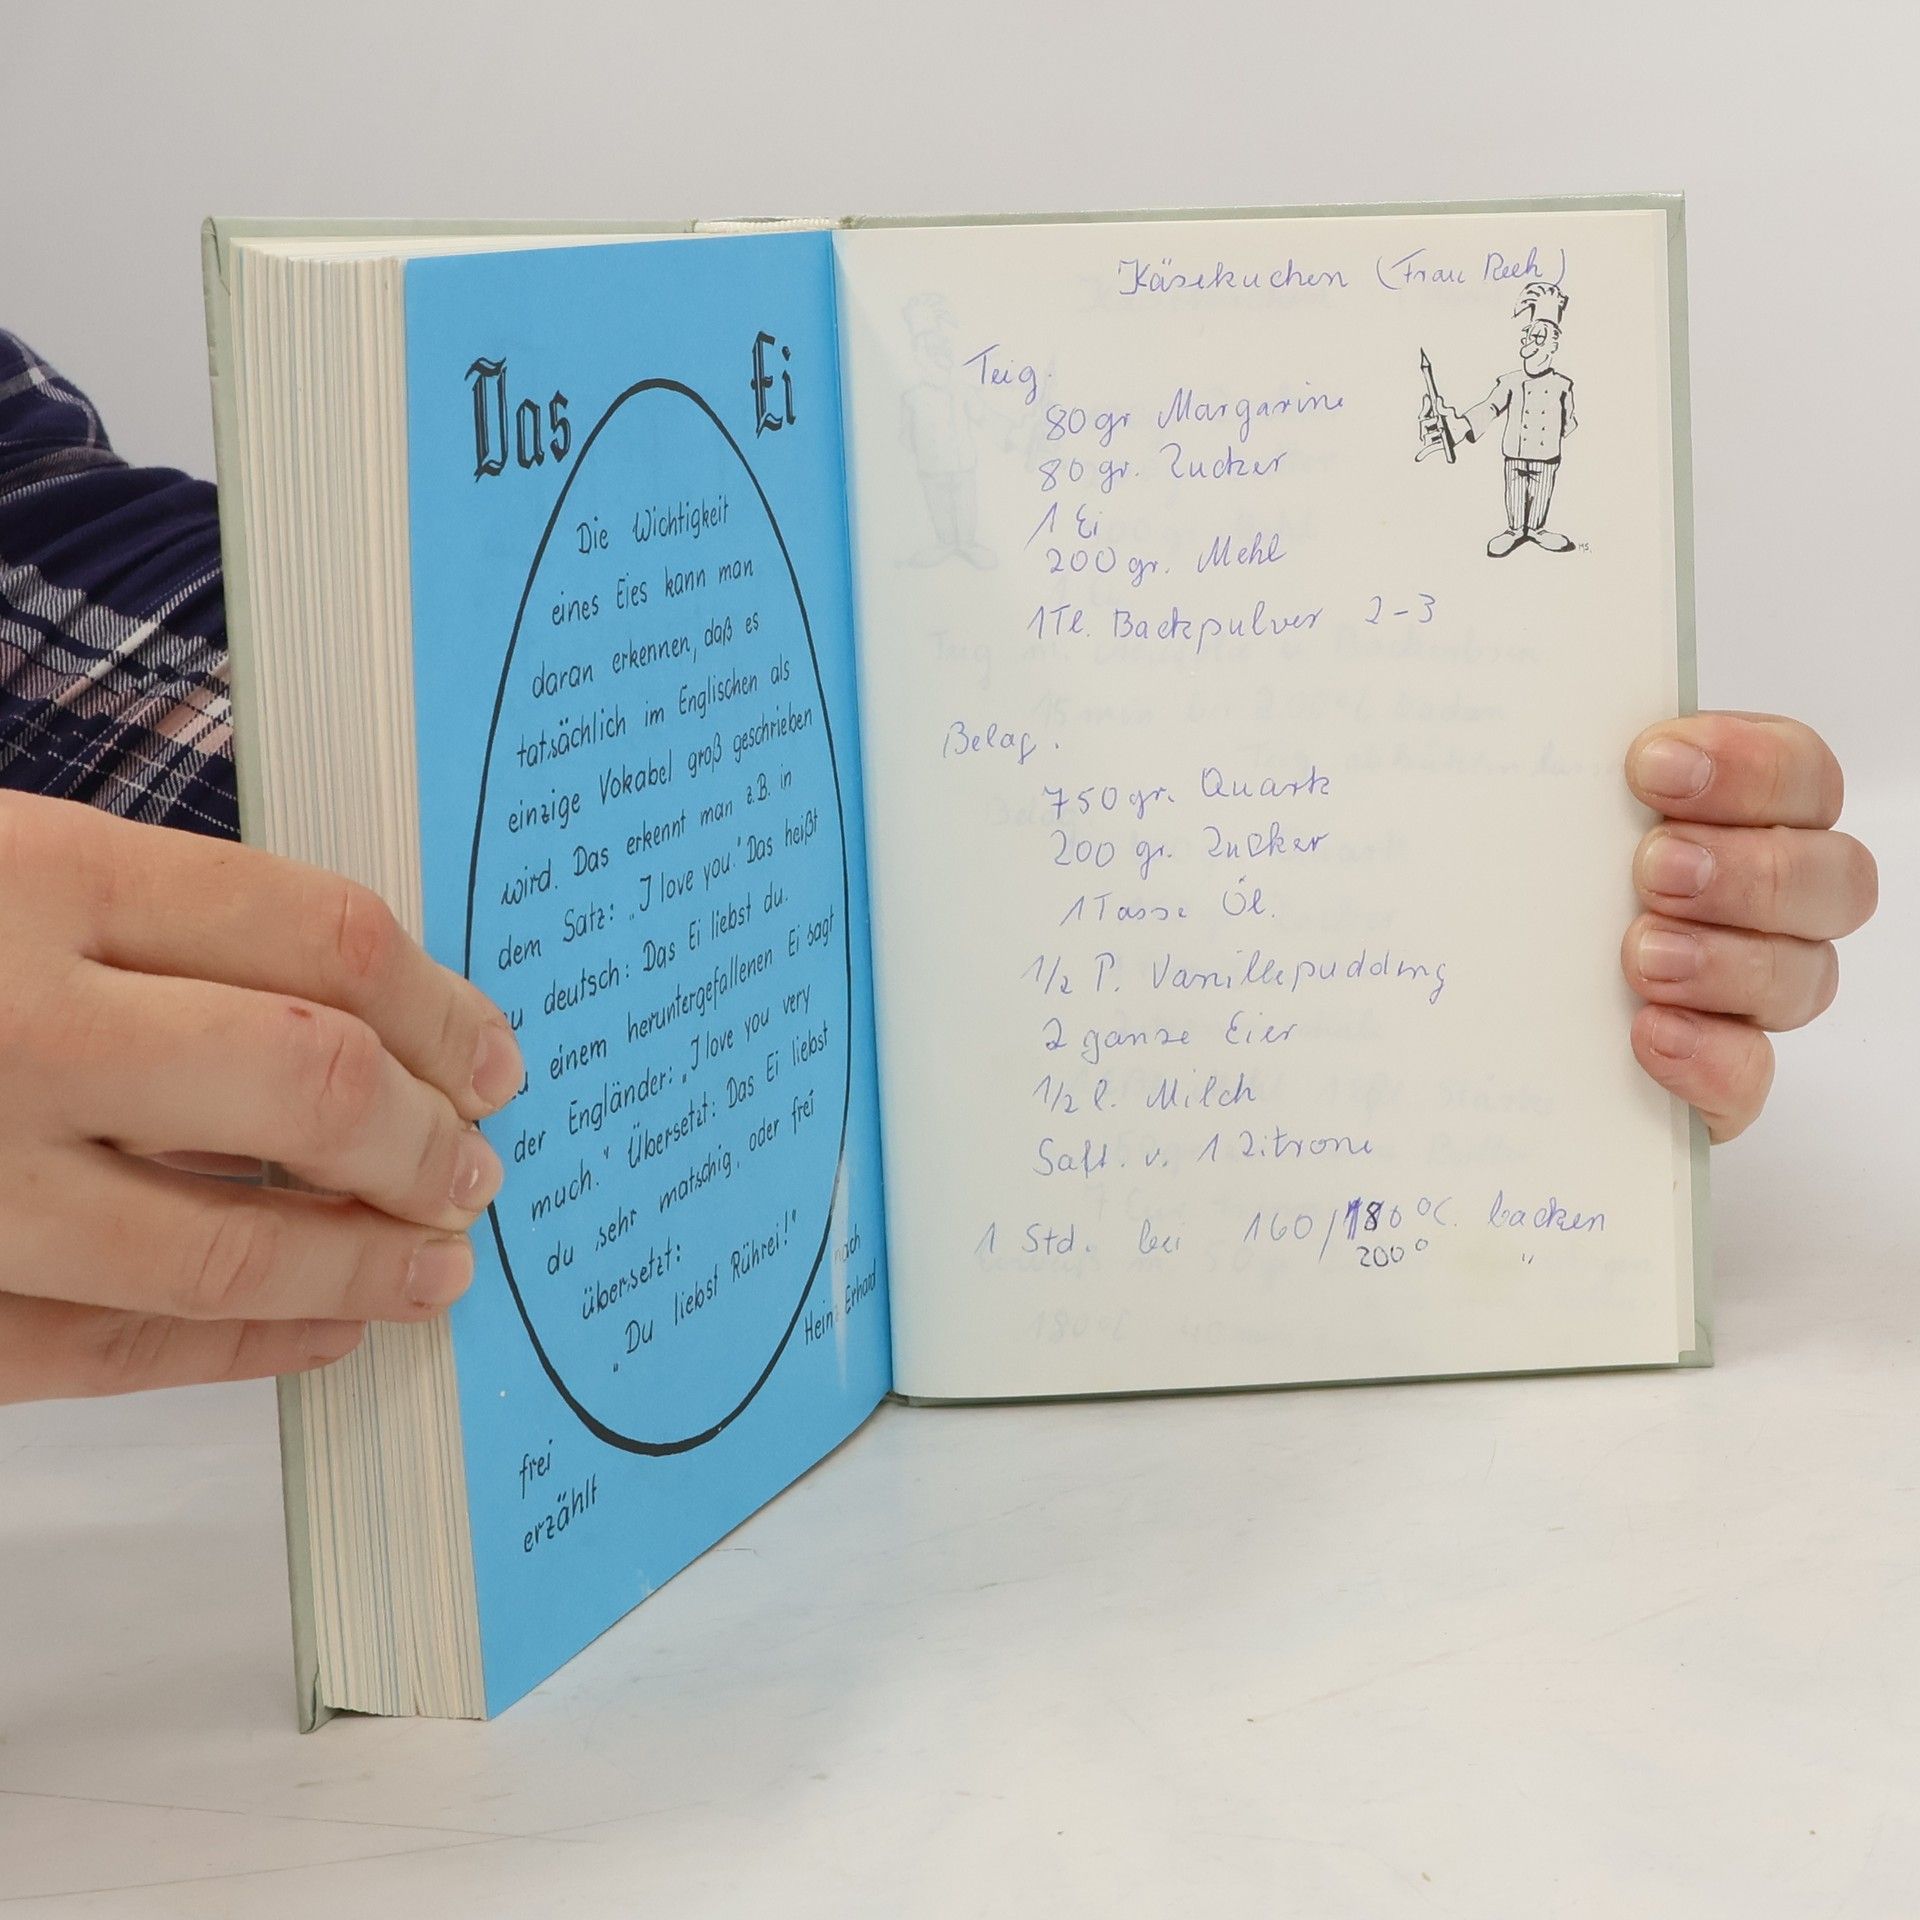 Das Ei
Die Wichtigkeit
eines Eies kann man
daran erkennen, daß es
tatsächlich im Englischen als
einzige Vokabel groß geschrieben
wird. Das erkennt man z.B. in
dem Satz: „I love you." Das heißt
zu deutsch: Das Ei liebst du.
Zu einem heruntergefallenen Ei sagt
der Engländer: „I love you very
much." Übersetzt: Das Ei liebst
du sehr matschig, oder frei
übersetzt:
„Du liebst Rührei!"
nach
Heinz Erhard
frei
erzählt
Käsekuchen (Frau
Teig.
80 gr Margarine
80 gr. Zucker
1 Ei
200 gr. Mehl
1 Tl. Backpulver 2-3
Belag.
750 gr. Quark
200 gr. Zucker
1 Tasse Öl.
1/2 P. Vanillepudding
2 ganze Eier
1/2 l. Milch
Saft. v. 1 Zitrone
1 Std. bei 160/180 °C. backen
200° "
H.S.